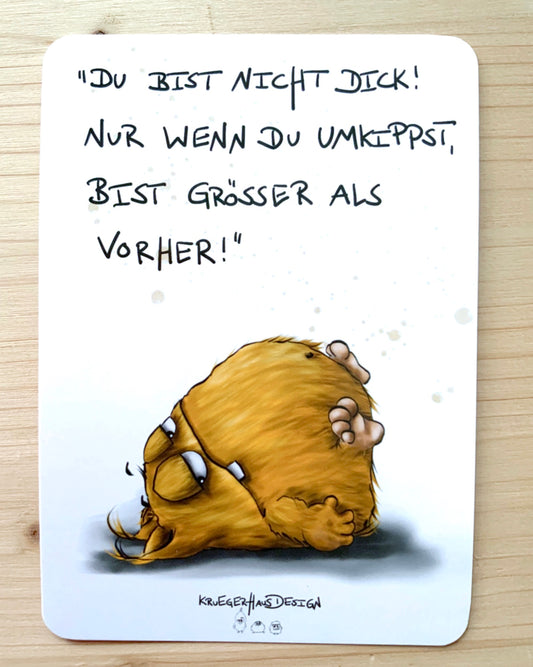 "DU BIST NICHT DICK!
NUR WENN DU UMKIPPST,
BIST GRÖSSER ALS
VORHER!"
KRUEGERHAUSDESIGN